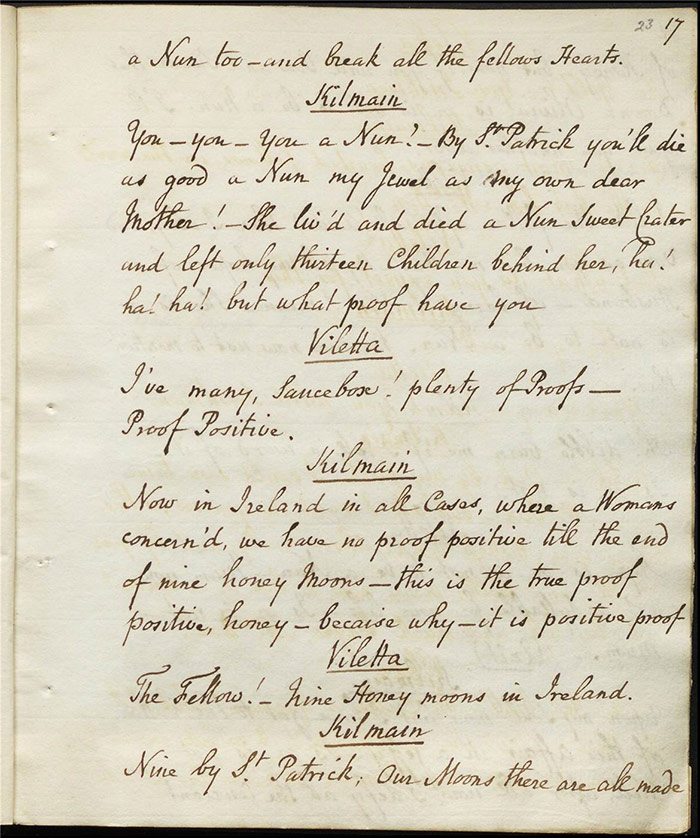 23 17
a Nun too - and break all the fellows Hearts.
Kilmain
You - you - You a Nun! - By St. Patrick you'll die
as good a Nun my Jewel as my own dear
Mother! - She liv'd and died a Nun Sweet Crater
and left only thirteen Children behind her, ha!
ha! ha! but what proof have you
Viletta
I've many, Saucebox! plenty of Proofs —
Proof Positive.
Kilmain
Now in Ireland in all Cases, where a Womans
concern'd, we have no proof positive till the end
of nine honey Moons — this is the true proof
positive, honey - becaise why - it is positive proof
Viletta
The Fellow! - Nine Honey moons in Ireland.
Kilmain
Nine by St Patrick; Our Moons there are all made